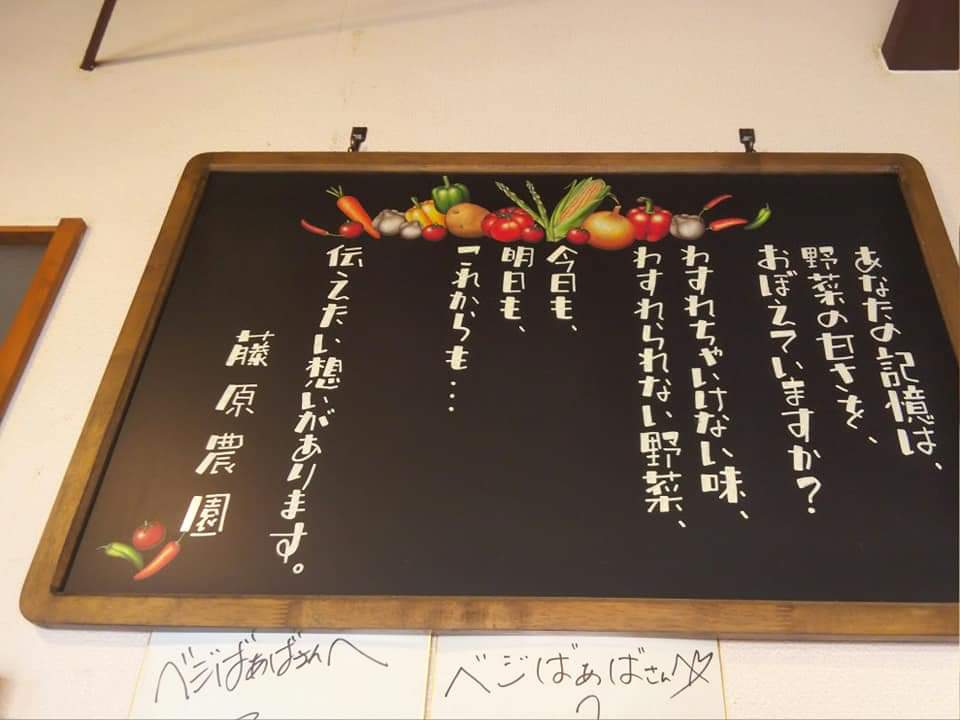 あなたの記憶は、
野菜の甘さを、
おぼえていますか?
わすれちゃいけない味、
わすれられない野菜、
今日も、
明日も、
これからも…
伝えたい想いがあります。
藤原農園
ベジばぁばさんへ
ベジばぁばさんへ